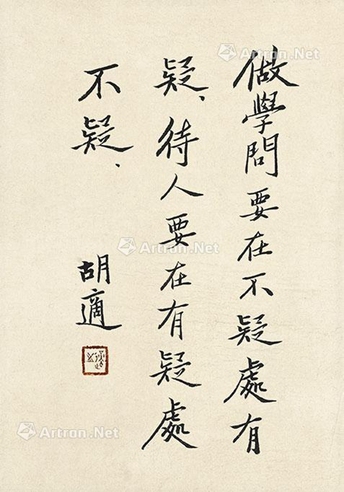 做學問要在不疑處有
疑、待人要在有疑處
不疑、
胡適
Artron.Net
Artron.Net
Artron.Net
Artron.Net